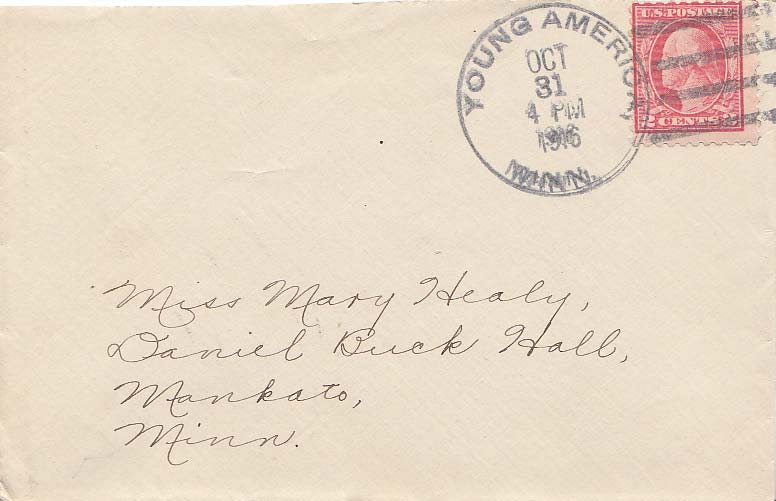 YOUNG AMERICA
OCT
31
4 PM
1916
MINN.
U.S. POSTAGE
2 CENTS 2
Miss Mary Healy,
Daniel Buck Hall,
Mankato,
Minn.